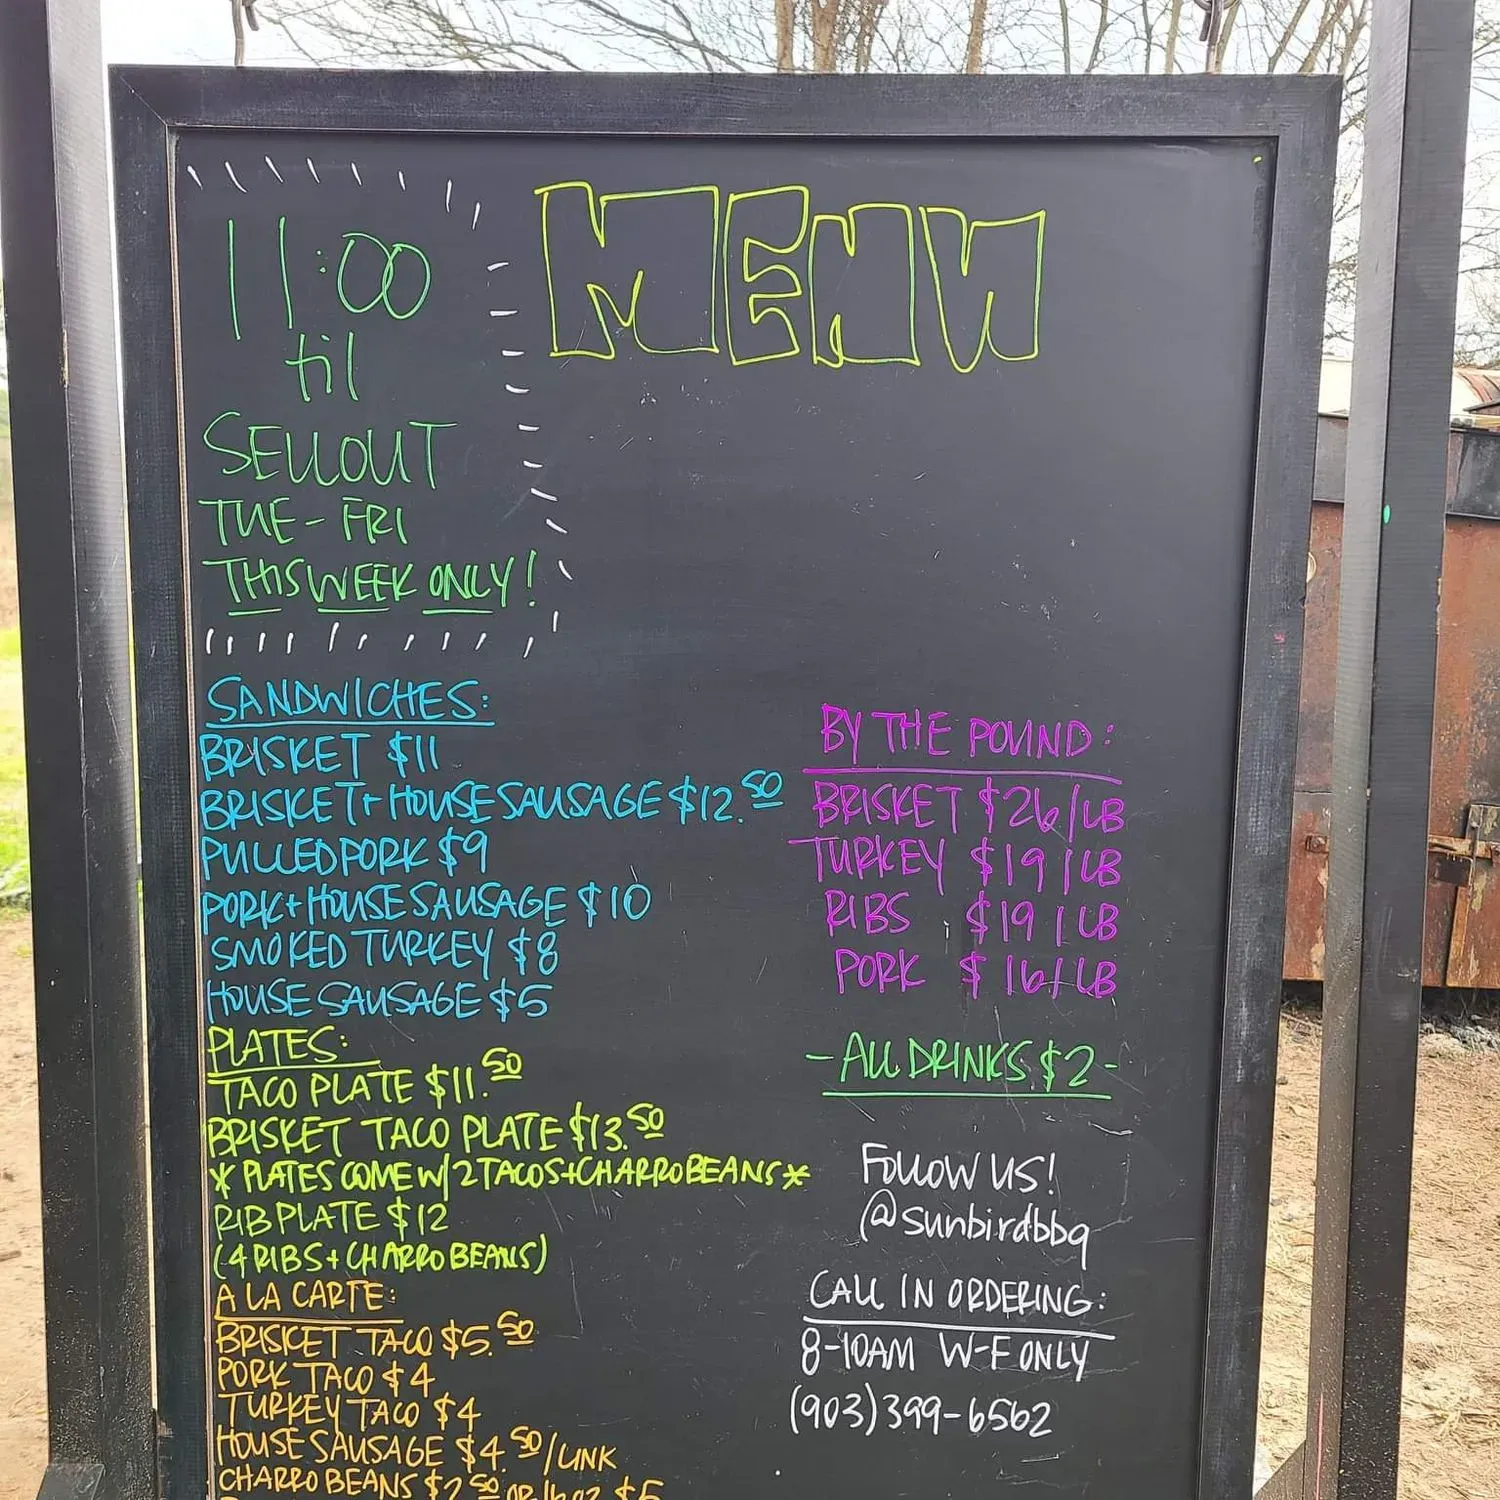 MENU
11:00
til
SELLOUT
TUE - FRI
THIS WEEK ONLY!
SANDWICHES:
BRISKET $11
BRISKET + HOUSE SAUSAGE $12.50
PULLED PORK $9
PORK + HOUSE SAUSAGE $10
SMOKED TURKEY $8
HOUSE SAUSAGE $5
PLATES:
TACO PLATE $11.50
BRISKET TACO PLATE $13.50
* PLATES COME W/ 2 TACOS + CHARRO BEANS *
RIB PLATE $12
(4 RIBS + CHARRO BEANS)
A LA CARTE:
BRISKET TACO $5.50
PORK TACO $4
TURKEY TACO $4
HOUSE SAUSAGE $4.50/LINK
CHARRO BEANS $2.50 OR 16oz $5
BY THE POUND:
BRISKET $26/LB
TURKEY $19/LB
RIBS $19/LB
PORK $16/LB
- ALL DRINKS $2 -
FOLLOW US!
@sunbirdbbq
CALL IN ORDERING:
8-10AM W-F ONLY
(903)399-6562